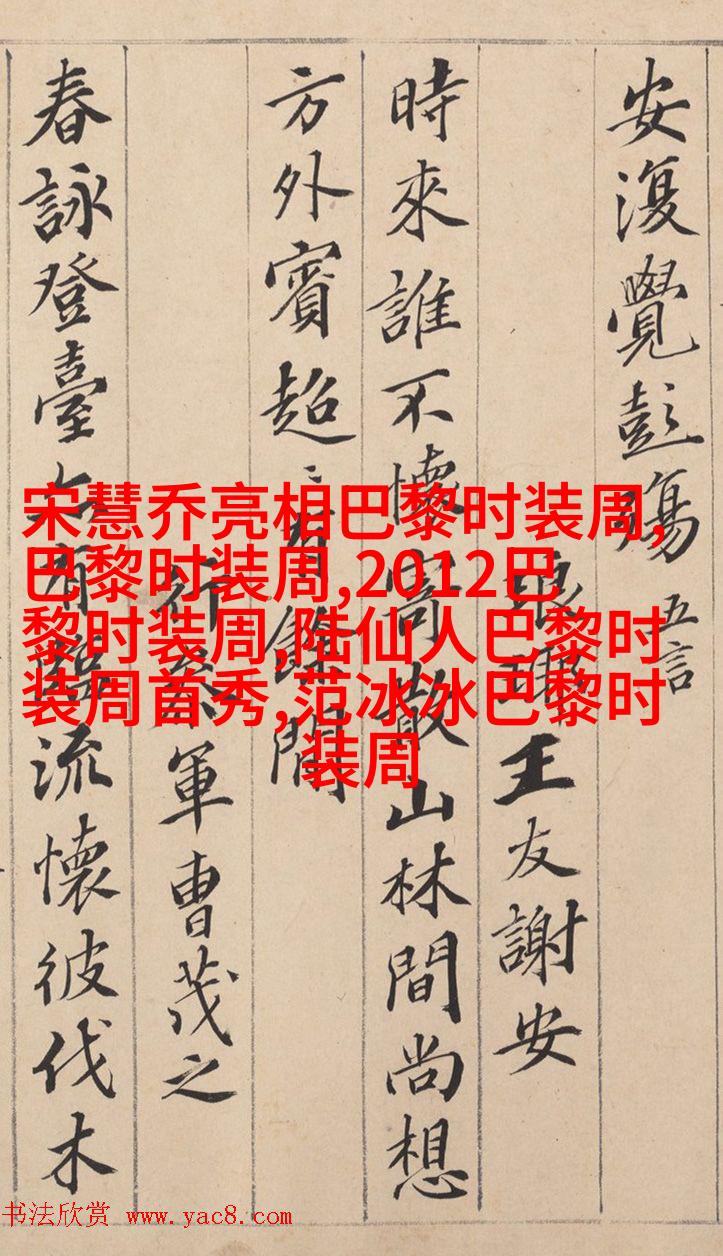 安復覺彭殤 五言
琅琊王友謝安
時來誰不懷寄散山林間尚想
方外賓超〻有餘閒
行參軍曹茂之
春詠登臺亦有臨流懷彼伐木
宋慧乔亮相巴黎时装周,
巴黎时装周,2012巴
黎时装周,陆仙人巴黎时
装周首秀,范冰冰巴黎时
装周
书法欣赏 www.yac8.com